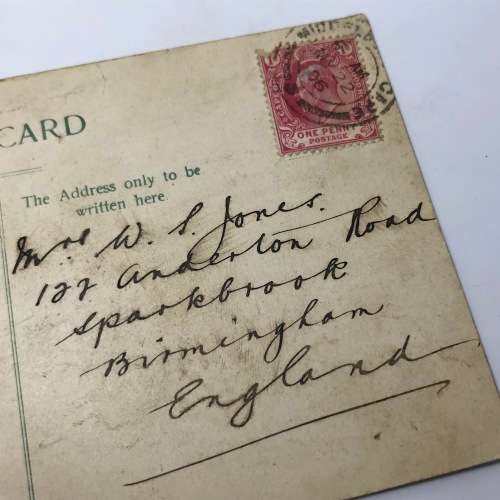 CARD
ONE PENNY
POSTAGE
The Address only to be
written here
Mrs W. S. Jones.
122 Anderton Road
Sparkbrook
Birmingham
England